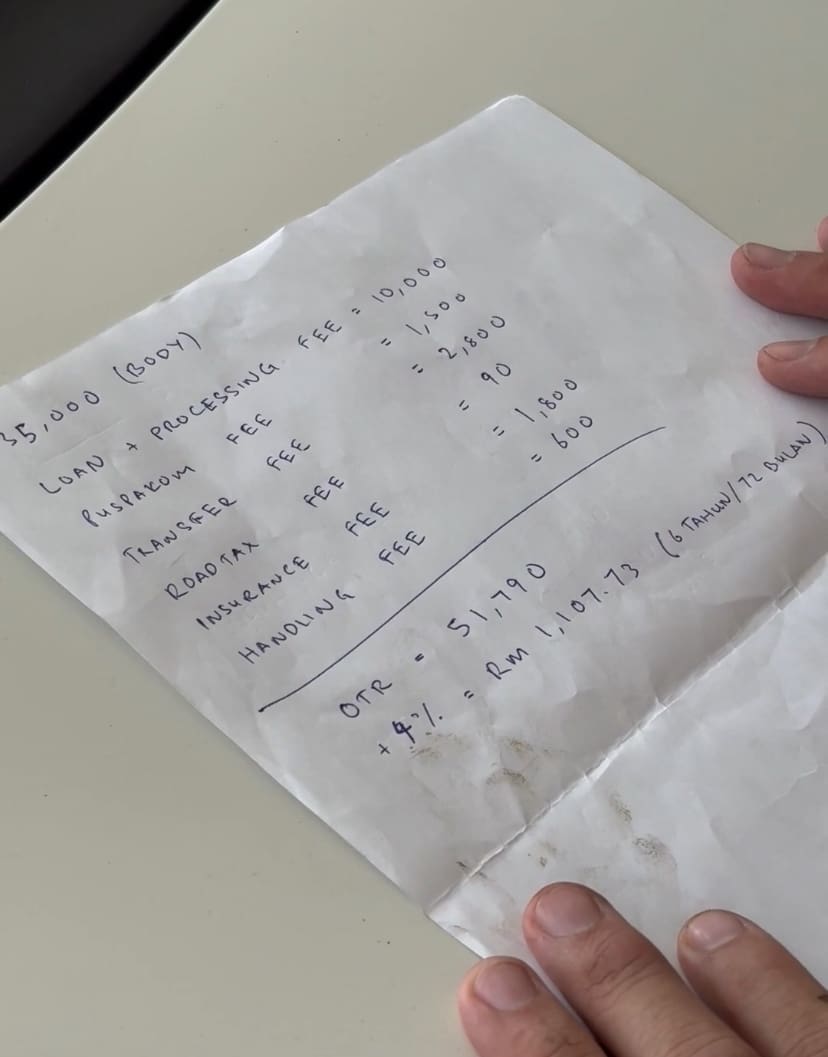 35,000 (BODY)
LOAN + PROCESSING FEE = 10,000
PUSPAKOM FEE = 1,500
TRANSFER FEE = 2,800
ROADTAX FEE = 90
INSURANCE FEE = 1,800
HANDLING FEE = 600
OTR = 51,790
+ 9% = RM 1,107.73 (6 TAHUN/72 BULAN)